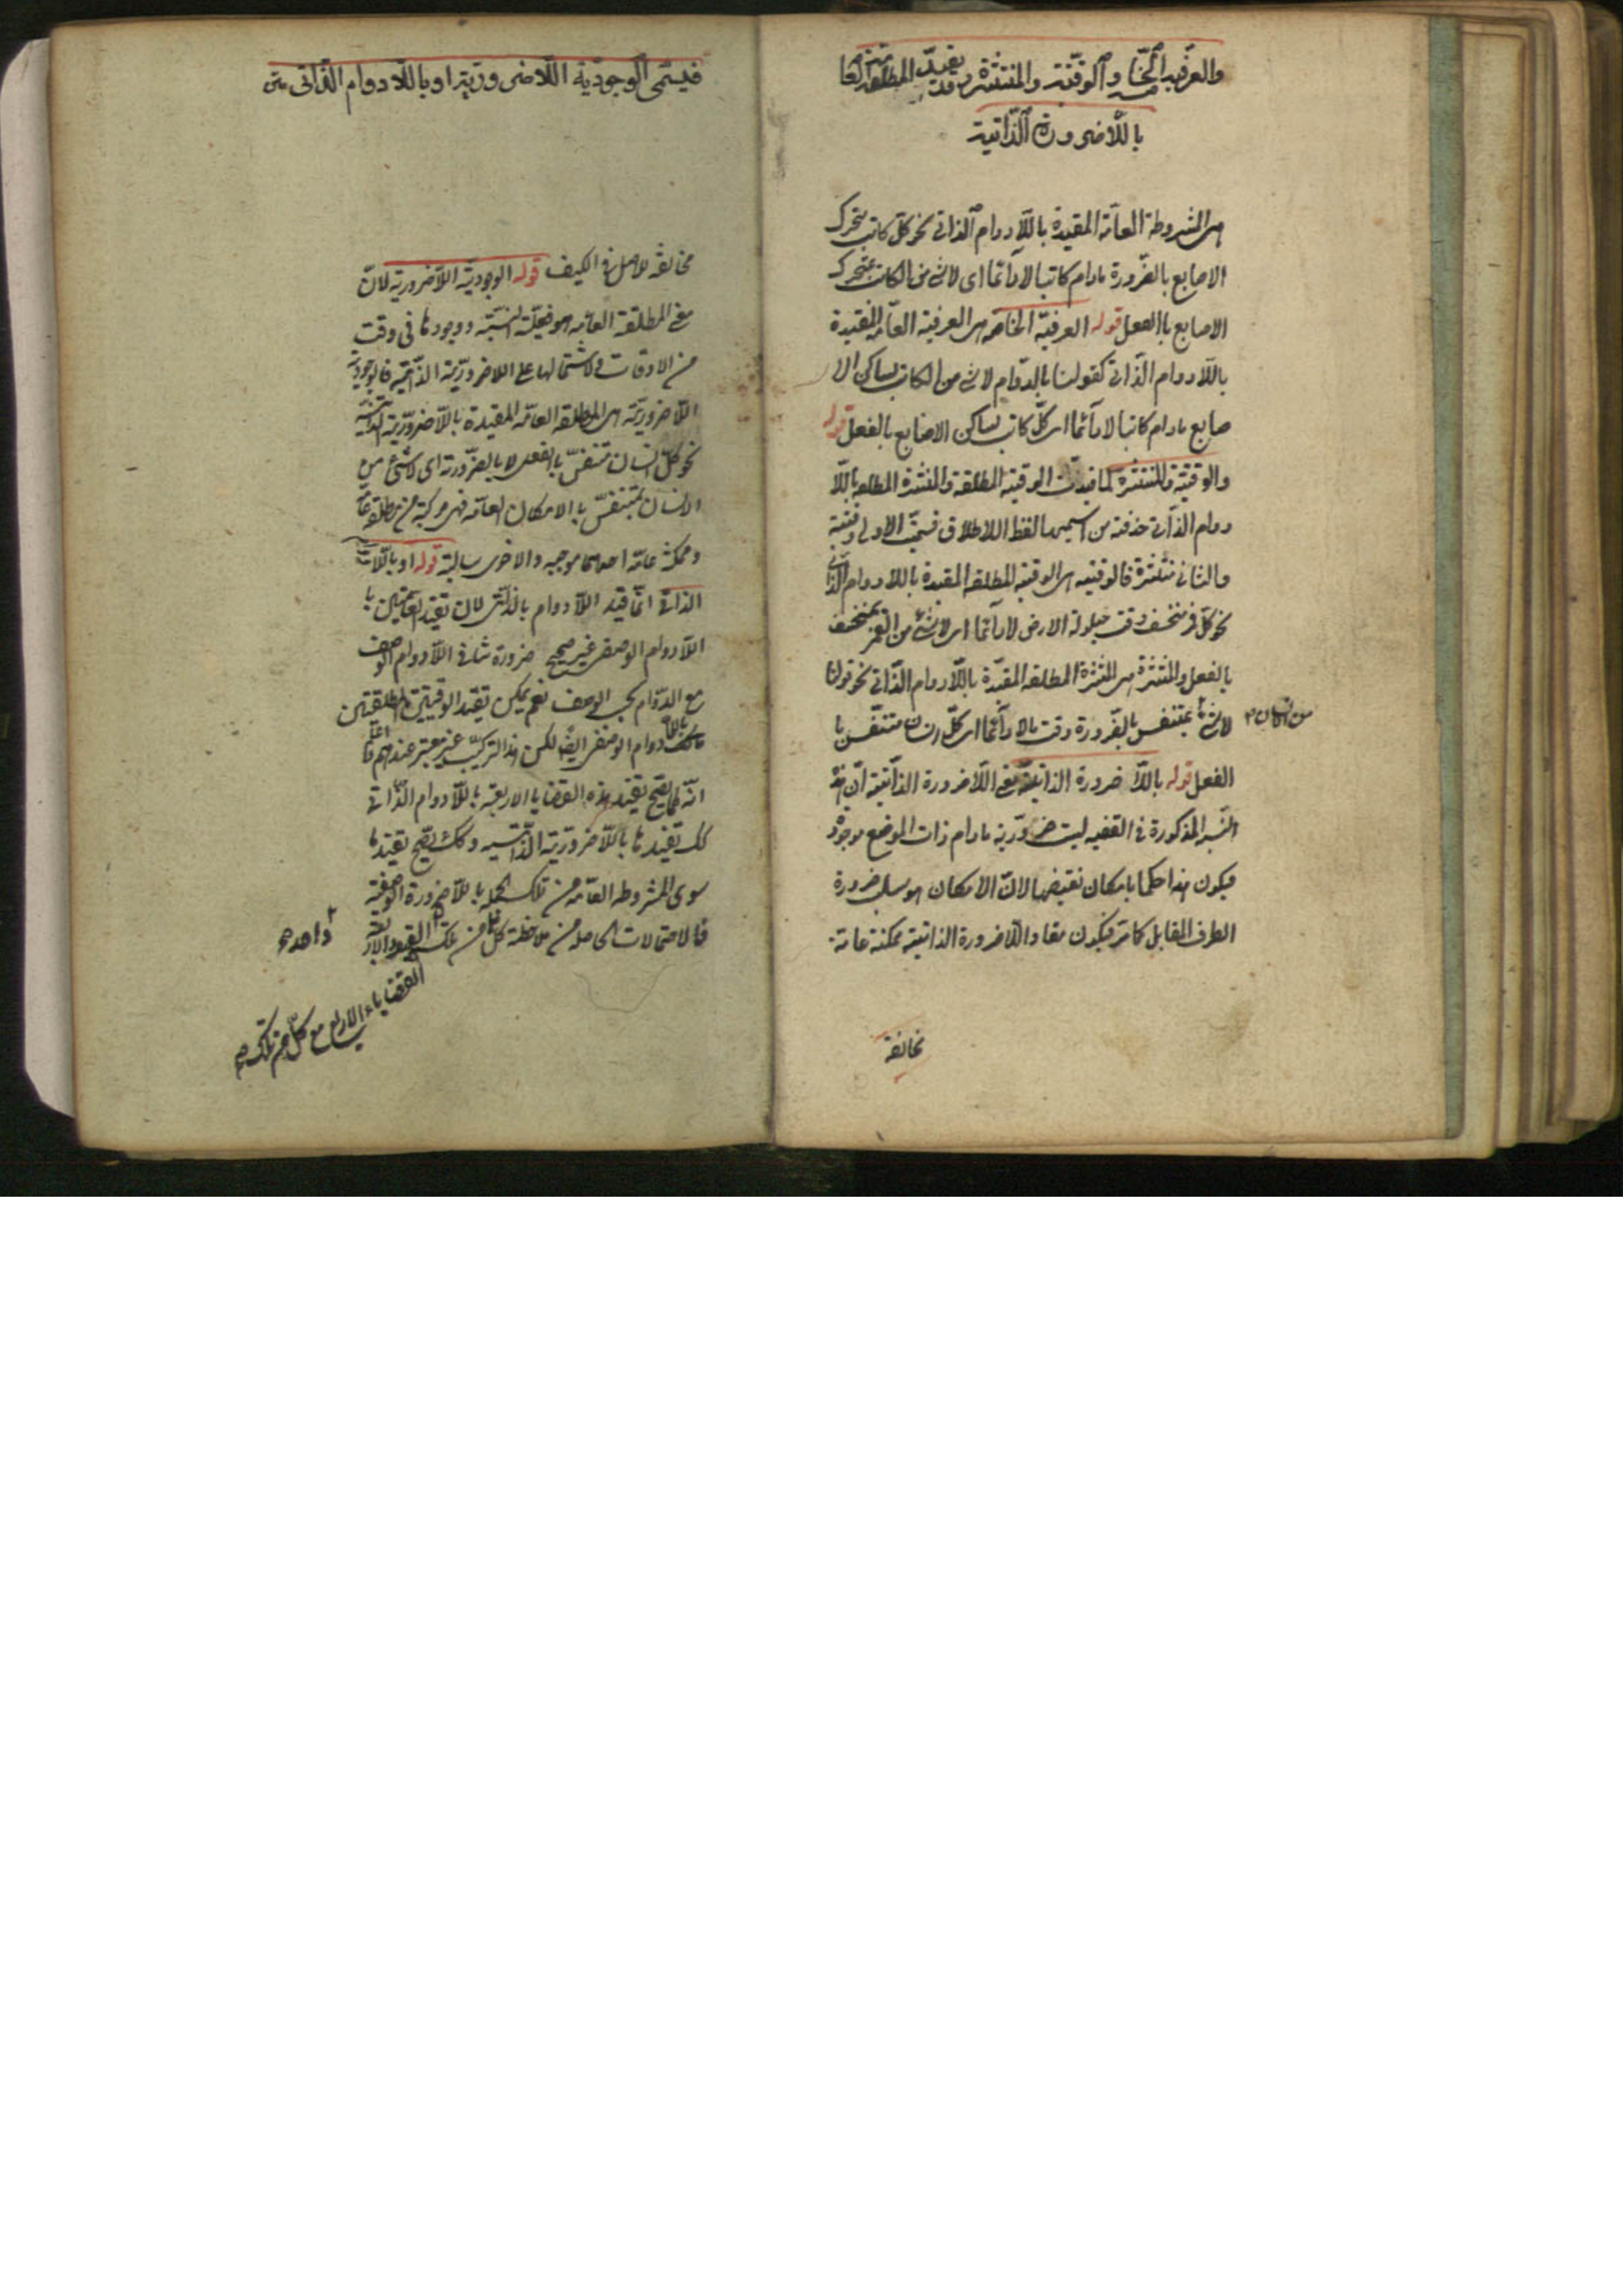 والعرفية الخاصة والوقتية والمنتشرة وقد تقيد المطلقة العامة
باللاضرورة الذاتية
هى المشروطة العامة المقيدة باللادوام الذاتى نحو كل كاتب متحرك
الاصابع بالضرورة مادام كاتبا لادائما اى لاشئ من الكاتب بمتحرك
الاصابع باالفعل قوله العرفية الخاصة هى العرفية العامة المقيدة
باللادوام الذاتى كقولنا بالدوام لاشئ من الكاتب بساكن الا
صابع مادام كاتبا لادائما اى كل كاتب ساكن الاصابع بالفعل قوله
والوقتية والمنتشرة لما قيدت الوقتية المطلقة والمنتشرة المطلقة باللا
دوام الذاتى حذفت من اسميهما لفظ الاطلاق فسميت الاولى وقتية
والثانى منتشرة فالوقتيه هى الوقتية المطلقة المقيدة باللادوام الذاتى
نحو كل قمر منخسف وقت حيلولة الارض لادائما اى لاشئ من القمر بمنخسف
بالفعل والمنتشرة هى المنتشرة المطلقة المقيدة باللادوام الذاتى نحو قولنا
لاشئ بمتنفس بالضرورة وقت ما لادائما اى كل انسان متنفس با
من الانسان
الفعل قوله باللا ضرورة الذاتية معنى اللاضرورة الذاتية ان هذه
النسبة المذكورة فى القضيه ليست ضرورية مادام ذات الموضع موجود
فيكون هذا حكما بامكان نقيضها لان الامكان هو سلب ضرورة
الطرف المقابل كما مر فيكون مفاد اللاضرورة الذاتية ممكنة عامة
مخالفة
فيسمى الوجودية اللاضرورية او باللادوام الذاتى متن
مخالفة للاصل فى الكيف قوله الوجودية اللاضرورية لان
معنى المطلقة العامة هو فعلية النسبة ووجودها فى وقت
من الاوقات ولاشتمالها على اللاضرورية الذاتية فالوجودية
اللاضرورية هى المطلقة العامة المقيدة باللاضرورية الذاتية
نحو كل انسان متنفس بالفعل لا بالضرورة اى لاشئ من
الانسان بمتنفس بالامكان العامة فهى مركبة من مطلقة عامة
وممكنة عامة احديهما موجبه والاخرى سالبة قوله او باللادوام
الذاتى انما قيد اللادوام بالذاتى لان تقيد العامتين با
اللادوام الوصفى غير صحيح ضرورة تنافى اللادوام الوصف
مع الدوام بحسب الوصف نعم يمكن تقيد الوقتيتين المطلقتين
باللادوام الوصفى ايضا لكن هذا التركيب غير معتبر عندهم واعلم
انه كما يصح تقيد هذه القضايا الاربعة باللادوام الذاتى
كك تقيدها باللاضرورية الذاتية وكك يصح تقيدها
سوى المشروطة العامة من تلك الجملة باللاضرورة الوصفية
فالاحتمالات الحاصلة من ملاحظة كل من تلك القيود الاربعة
واحدة
القضايا الاربع مع كل من تلك